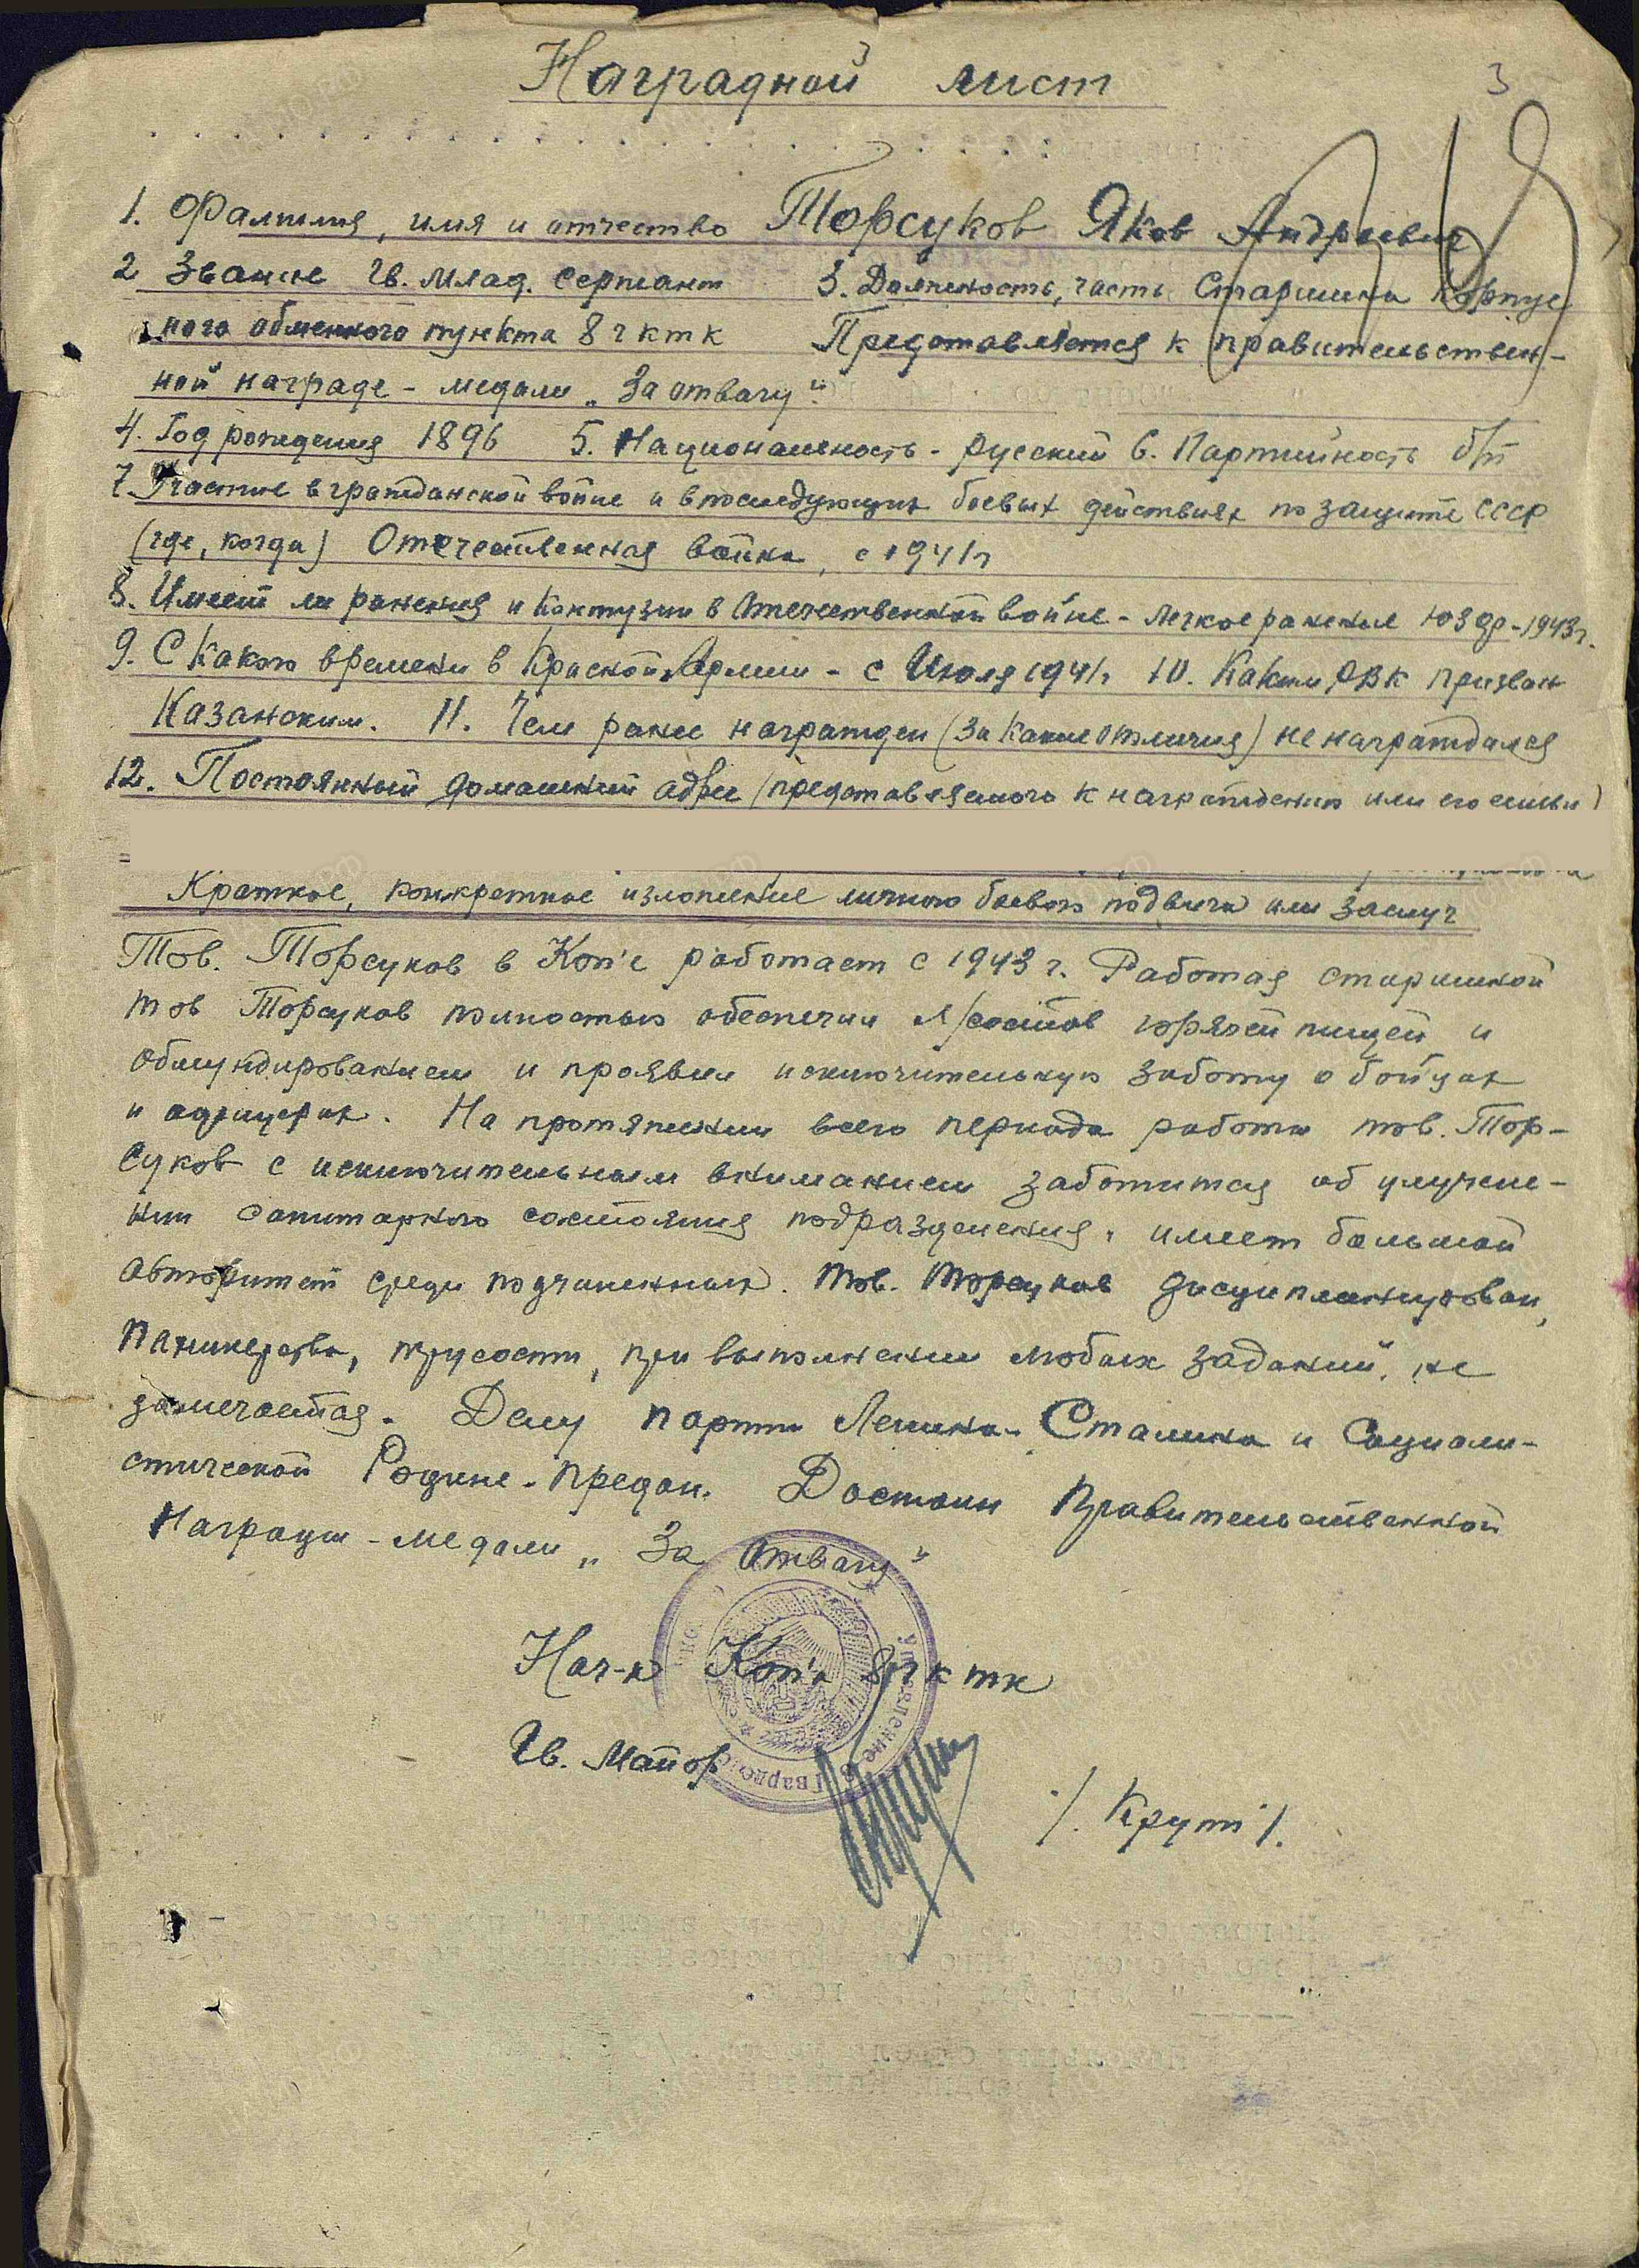 Наградной лист
3
1. Фамилия, имя и отчество Торсуков Яков Андреевич
2 Звание Гв. млад. сержант 3. Должность, часть Старшина Корпус
ного обменного пункта 8 г к т к Представляется к правительствен-
ной награде - медали „За отвагу"
4. Год рождения 1896 5. Национальность - русский 6. Партийность б/п
7. Участие в гражданской войне и в последующих боевых действиях по защите СССР
(где, когда) Отечественная война, с 1941 г
8. Имеет ли ранения и контузии в Отечественной войне - легкое ранение 1943 г.
9. С какого времени в Красной Армии - с Июля 1941 г 10. Каким РВК призван
Казанским. 11. Чем ранее награжден (за какие отличия) не награждался
12. Постоянный домашний адрес (представляемого к награждению или его семьи)
Краткое, конкретное изложение личного боевого подвига или заслуг
Тов. Торсуков в Коп'е работает с 1943 г. Работая старшиной
тов Торсуков полностью обеспечил л/состав горячей пищей и
обмундированием и проявил исключительную заботу о бойцах
и офицерах. На протяжении всего периода работы тов. Тор-
суков с исключительным вниманием заботится об улучше-
нии санитарного состояния подразделения, имеет большой
авторитет среди подчиненных. Тов. Торсуков дисциплинирован,
паникерства, трусости, при выполнении любых заданий, не
замечается. Делу партии Ленина - Сталина и Социали-
стической Родине - предан. Достоин Правительственной
Награды - медали „За отвагу"
Нач-к Коп'а 8 г к т к
Гв. Майор
/. Крут /.
Управление 8 Гвардейс